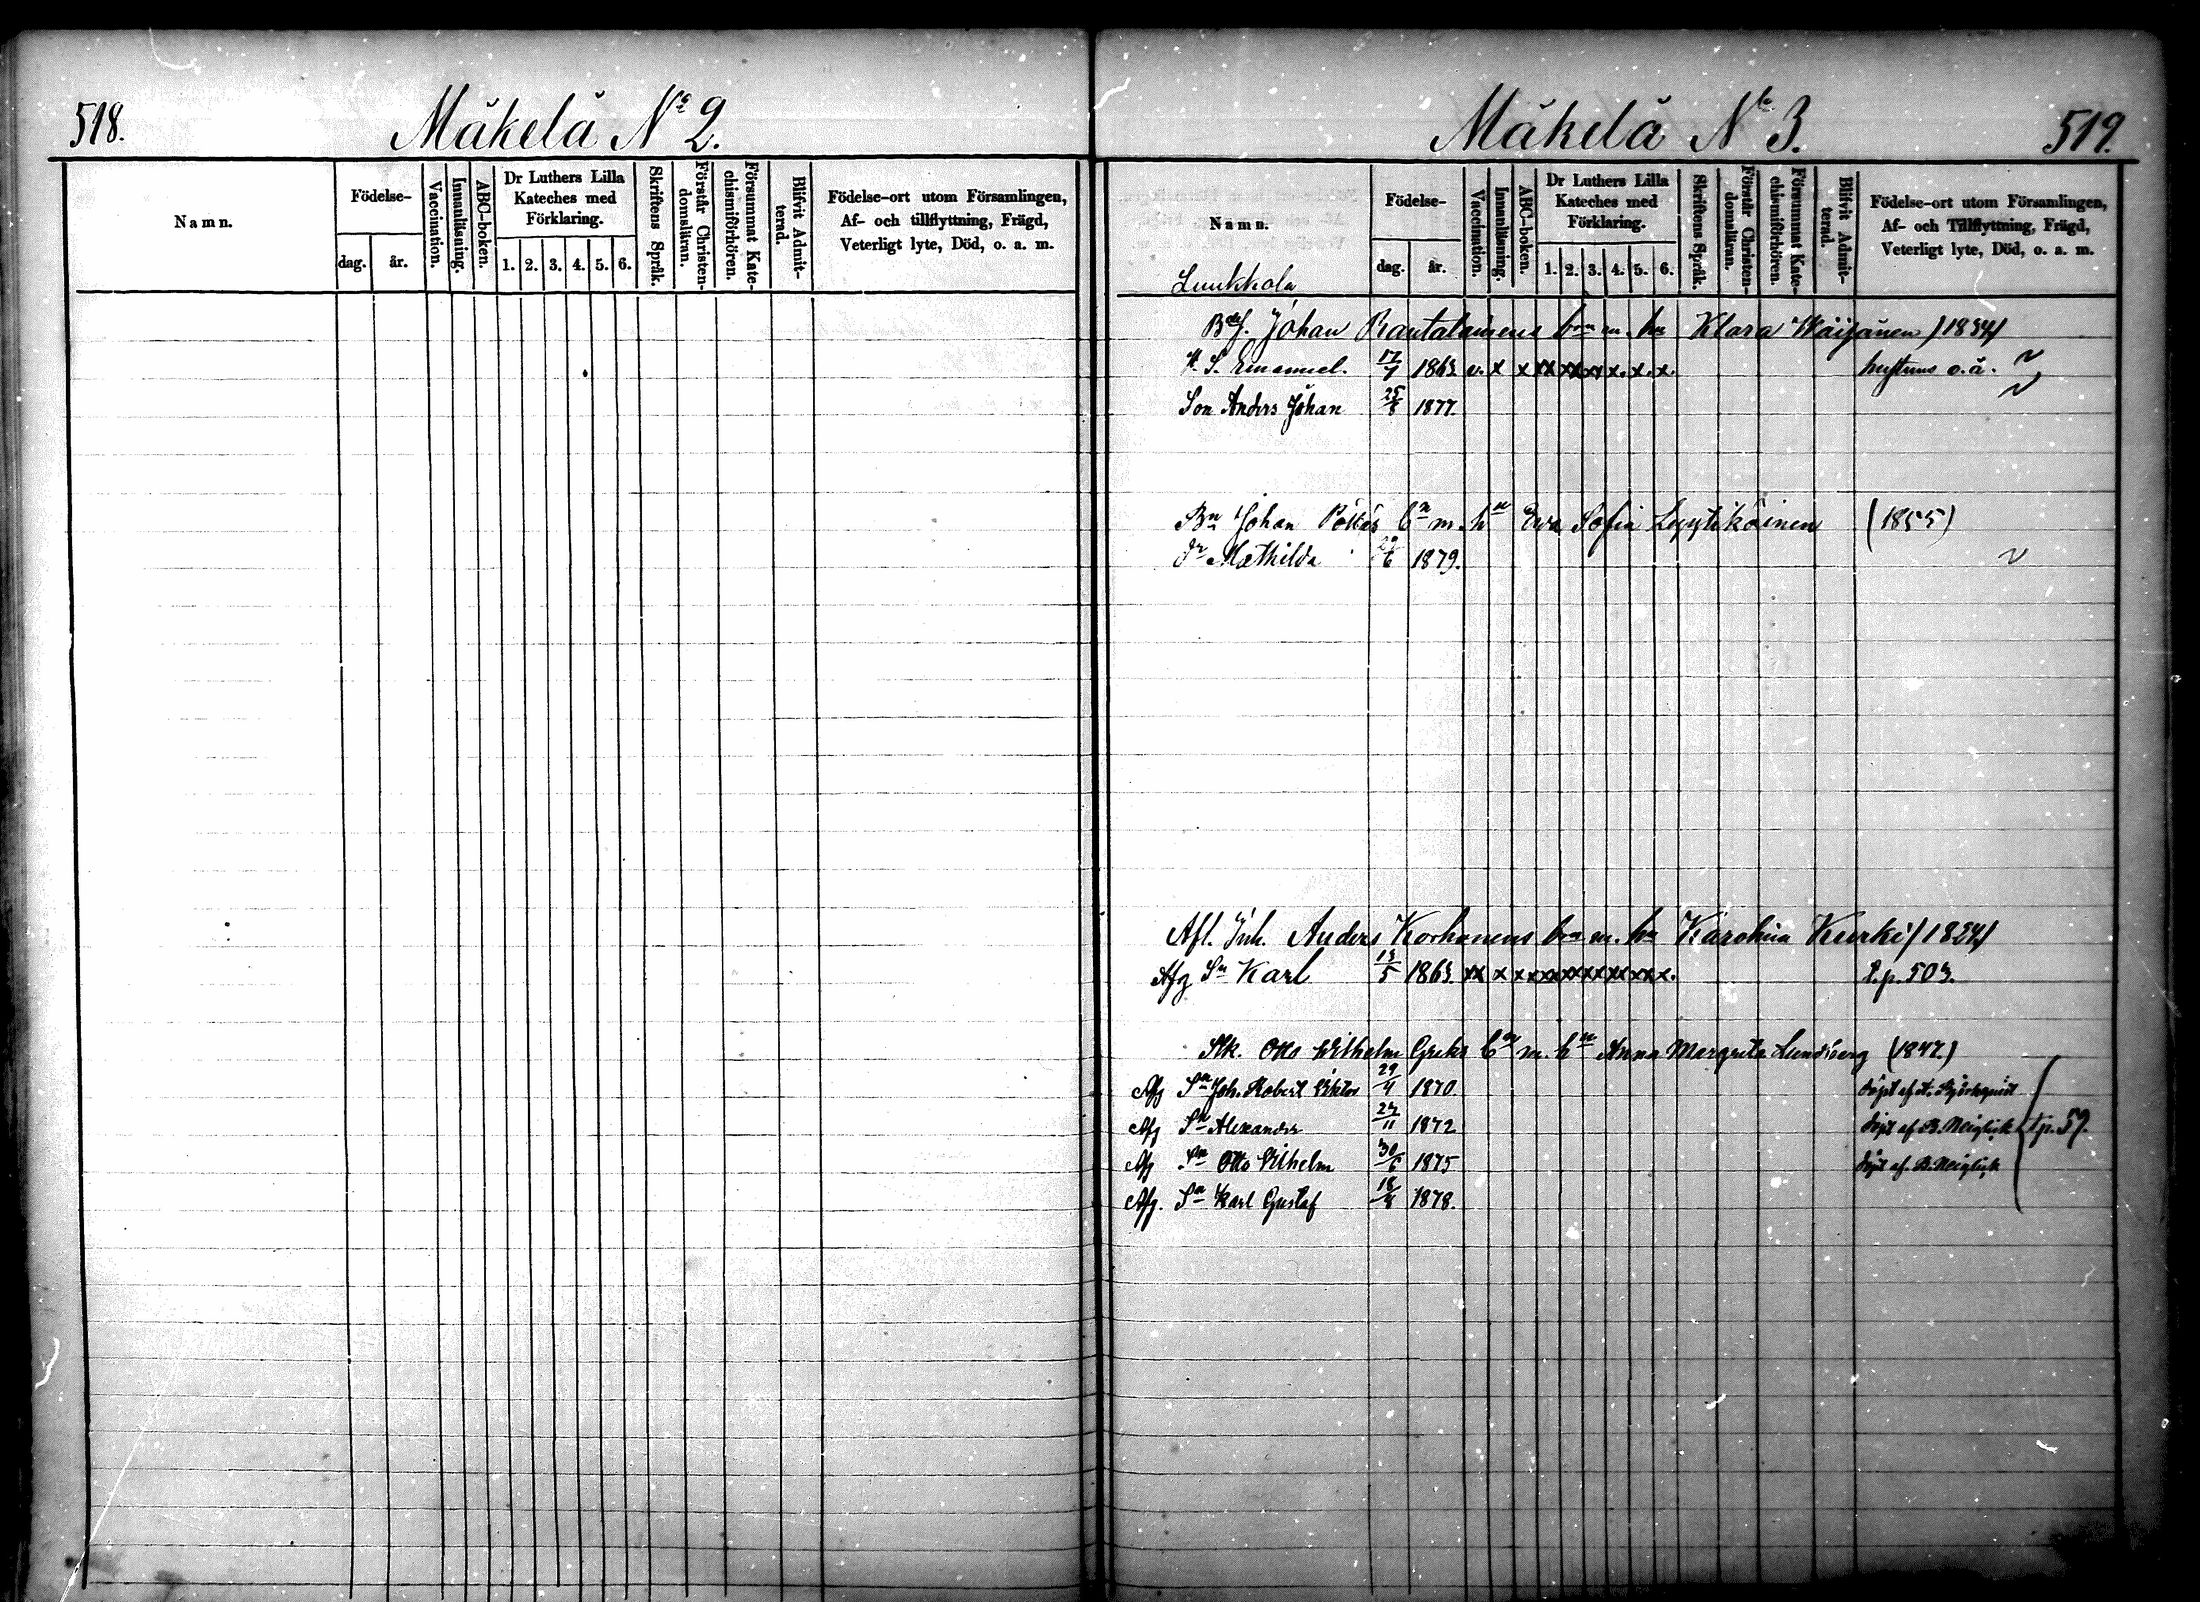 518.
Mäkelä No 2.
Namn.
Födelse-
dag.
år.
Vaccination.
Innanläsning.
ABC-boken.
Dr Luthers Lilla
Kateches med
Förklaring.
1. 2. 3. 4. 5. 6.
Skriftens Språk.
Förstår Christen-
domsläran.
Försummat Kate-
chismiförhören.
Blifvit Admit-
terad.
Födelse-ort utom Församlingen,
Af- och tillflyttning, Frägd,
Veterligt lyte, Död, o. a. m.
Mäkelä No 3.
519.
Namn.
Luukkola
Födelse-
dag.
år.
Vaccination.
Innanläsning.
ABC-boken.
Dr Luthers Lilla
Kateches med
Förklaring.
1. 2. 3. 4. 5. 6.
Skriftens Språk.
Förstår Christen-
domsläran.
Försummat Kate-
chismiförhören.
Blifvit Admit-
terad.
Födelse-ort utom Församlingen,
Af- och Tillflyttning, Frägd,
Veterligt lyte, Död, o. a. m.
Johan Rantalainens brn m. hu Klara Wäisänen /1834/
S. Emanuel. 17/7 1863 v. x x xx xx xx x. x. x. o. å.
Son Anders Johan 25/8 1877.
Bn Johan bn m. hu Eva Sofia Lyytikäinen (1855)
Dr Mathilda 1879.
Afl. Inh. Anders Korhonens brn m. hu Karolina Kurki /1824/
Afg Sn Karl 13/5 1863 xx x x x xx xx xx xx xx x. T.p. 503.
Otto Wilhelm Greks bn m. hu Anna Margreta Lundberg (1847.)
Afg Sn Joh. Robert Viktor 29/4 1870. Döpt af A. Björkqvist
Afg Sn Alexander 27/11 1872 Döpt af B. Neiglick T.p. 59.
Afg Sn Otto Vilhelm 30/6 1875 Döpt af. B. Neiglick
Afg. Sn Karl Gustaf 18/4 1878.